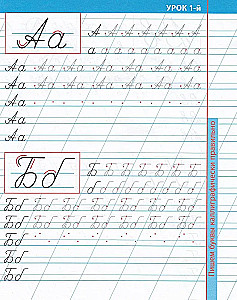 УРОК 1-й
Аа А А А А А А А
а а а а а а а а
Аа Аа Аа Аа Аа Аа
Аа Аа Аа Аа Аа Аа
Аа
Аа
Аа
Бб Б Б Б Б Б Б Б
б б б б б б б б
Бб Бб Бб Бб Бб Бб
Бб Бб Бб Бб Бб Бб
Бб
Бб
Бб
Пишем буквы каллиграфически правильно